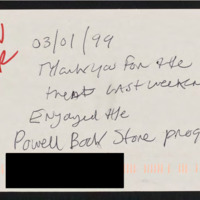 03/01/99
Thank you for the
treat last weekend
Enjoyed the
Powell Book Store prog